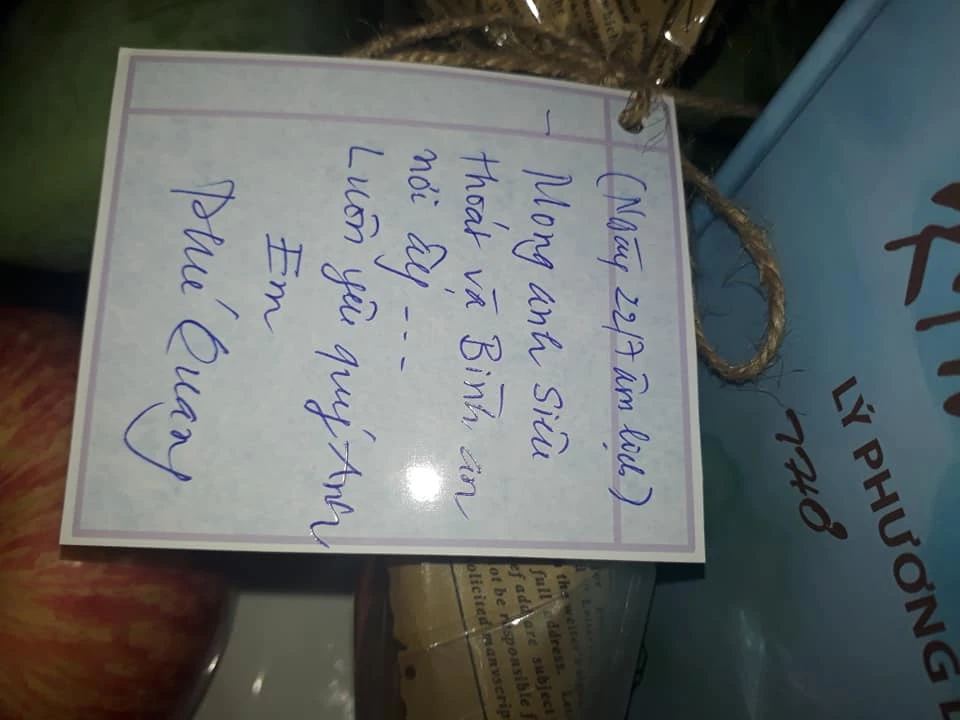 (Ngày 22/7 âm lịch)
- Mong anh Siêu
thoát và Bình an
nơi ấy ---
Luôn yêu quý Anh
Em
Phú Quang
LÝ PHƯƠNG
THƠ
the writer's
full address.
ef add are subject
ot be responsible f
olicited manuscrip